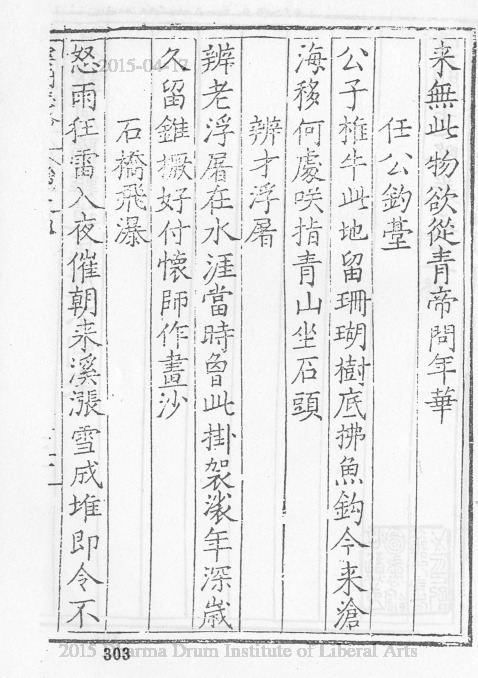 来無此物欲從青帝問年華
任公釣臺
公子椎牛此地留珊瑚樹底拂魚鈎今来滄
海移何處咲指青山坐石頭
辨才浮屠
辨老浮屠在水涯當時曾此掛袈裟年深歲
久留錐橛好付懷師作畫沙
石橋飛瀑
怒雨狂雷入夜催朝来溪漲雪成堆即令不
303
2015-04-17